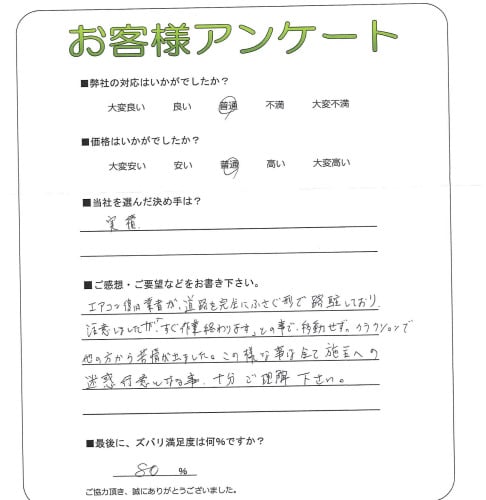 お客様アンケート
■弊社の対応はいかがでしたか？
大変良い 良い 普通 不満 大変不満
■価格はいかがでしたか？
大変安い 安い 普通 高い 大変高い
■当社を選んだ決め手は？
実積
■ご感想・ご要望などをお書き下さい。
エアコン 業者が、道路を完全にふさぐ形で路駐しており、
注意しましたが、「すぐ作業終わります」との事で、移動せず。クラクションで
他の方から苦情が出ました。この様な事は全て施主への
迷惑行 となる事、十分ご理解下さい。
■最後に、ズバリ満足度は何%ですか？
80 %
ご協力頂き、誠にありがとうございました。